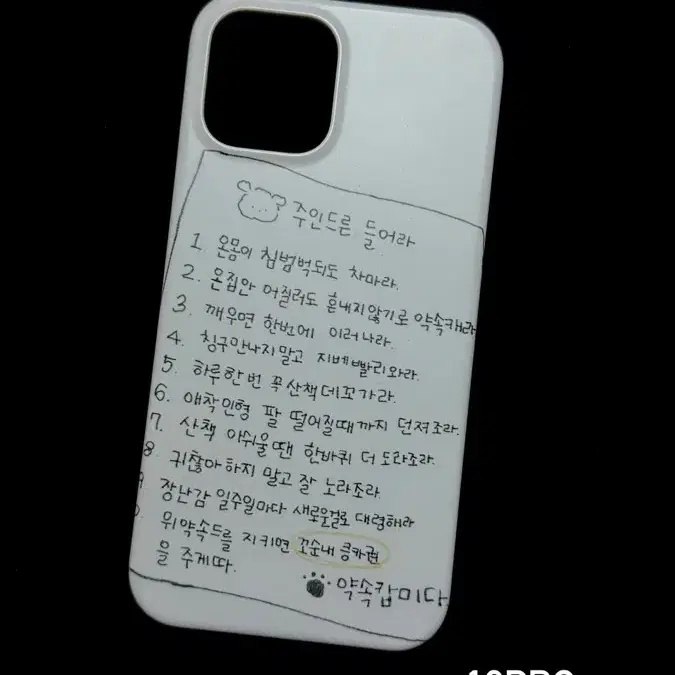 주인드른 들어라
1. 온몸이 침범벅되도 차마라.
2. 온집안 어질러도 혼내지않기로 약속캐라
3. 깨우면 한번에 이러나라.
4. 칭구만나지말고 지베빨리와라.
5. 하루한번 꼭산책데꼬가라.
6. 애착인형 팔 떨어질때까지 던져조라.
7. 산책 아쉬울땐 한바퀴 더 도라조라.
8. 귀찮아하지 말고 잘 노라조라
장난감 일주일마다 새로운걸로 대령해라
위약속드를 지키면 꼬순내 증카권
을 주게따.
약속캅미다